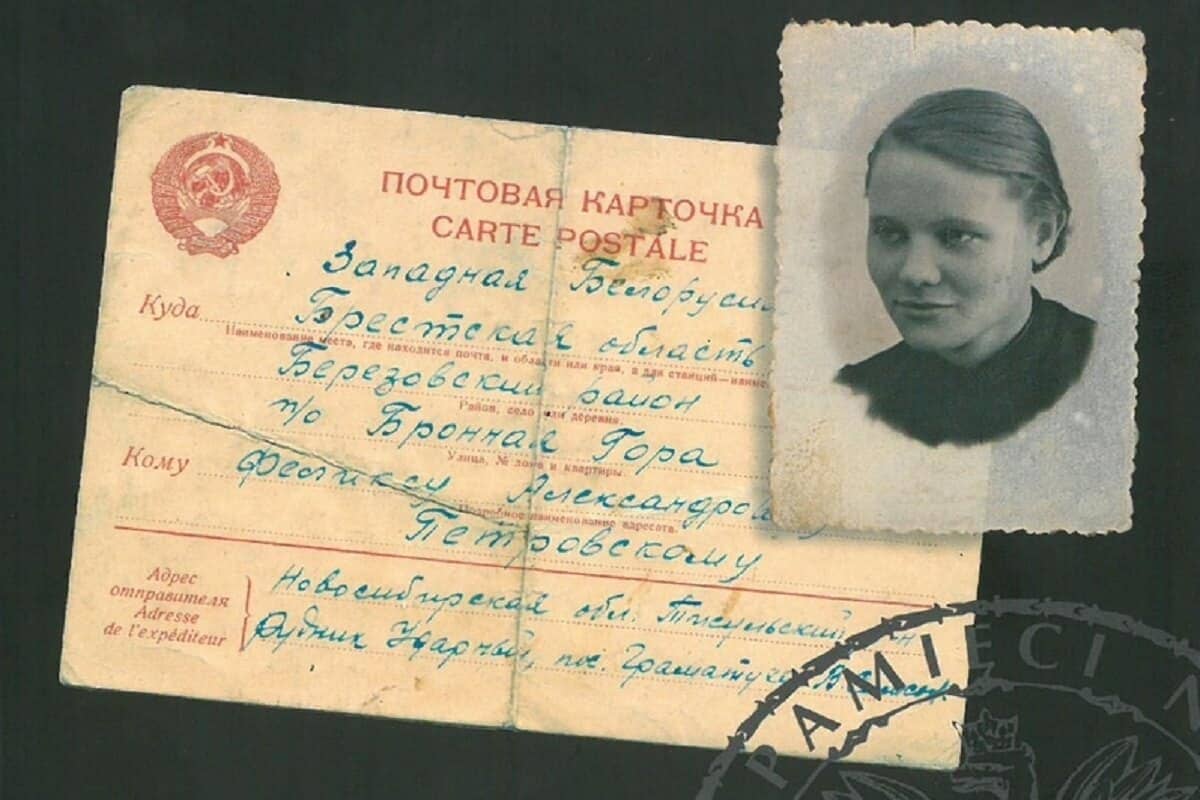 ПОЧТОВАЯ КАРТОЧКА
CARTE POSTALE
Западная Белорусия
Куда Брестская область
Наименование места, где находится почта, и области или края, а для станций—наиме
Березовский район
Район, село или деревня.
п/о Бронная Гора
Улица, № дома и квартиры.
Кому Феликсу Александро
Подробное наименование адресата.
Петровскому
Адрес
отправителя
Adresse
de l'expéditeur
Новосибирская обл. Тисульский
Рудник Ударный, пос.
PAMIĘCI